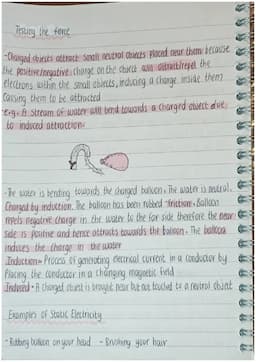 Testing the force
-Charged objects attract small neutral objects placed near them because
the positive/negative charge on the object will attract/repel the
electrons within the small objects, inducing a charge inside them
causing them to be attracted
e.g. A stream of water will bend towards a charged object due
to induced attraction.
-The water is bending towards the charged balloon. The water is neutral.
Charged by induction. The balloon has been rubbed - friction. Balloon
repels negative charge in the water to the far side therefore the near
side is positive and hence attracts towards the balloon. The balloon
induces the charge in the water
Induction - Process of generating electrical current in a conductor by
placing the conductor in a changing magnetic field
Induced - A charged object is brought near but not touched to a neutral object
Examples of Static Electricity
-Rubbing balloon on your head - Brushing your hair